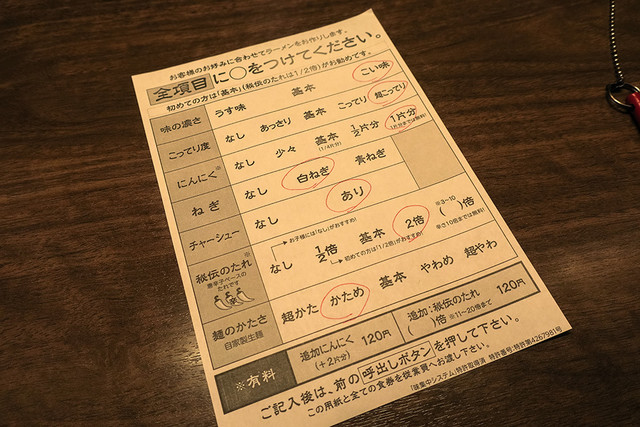 お客様のお好みに合わせてラーメンをお作りします。
全項目に○をつけてください。
初めての方は「基本」(秘伝のたれは1/2倍)がお勧めです。
味の濃さ うす味 基本 こい味
こってり度 なし あっさり 基本 こってり 超こってり
にんにく※ なし 少々 基本(1/4片分) 1/2片分 1片分
1片分までは無料!
ねぎ なし 白ねぎ 青ねぎ
チャーシュー なし あり
お子様には「なし」がおすすめ!
秘伝のたれ※ なし 1/2倍 基本 2倍 ※3~10( )倍
唐辛子ベースのたれです
初めての方は「1/2倍」がおすすめ!
辛さ10倍までは無料!
麺のかたさ 超かた かため 基本 やわめ 超やわ
自家製生麺
※有料 追加にんにく(+2片分) 120円 追加:秘伝のたれ( )倍 ※11~20倍まで 120円
ご記入後は、前の呼出しボタンを押して下さい。
この用紙と全ての食券を従業員へお渡し下さい。
「味集中システム」特許取得済 特許番号:特許第4267981号